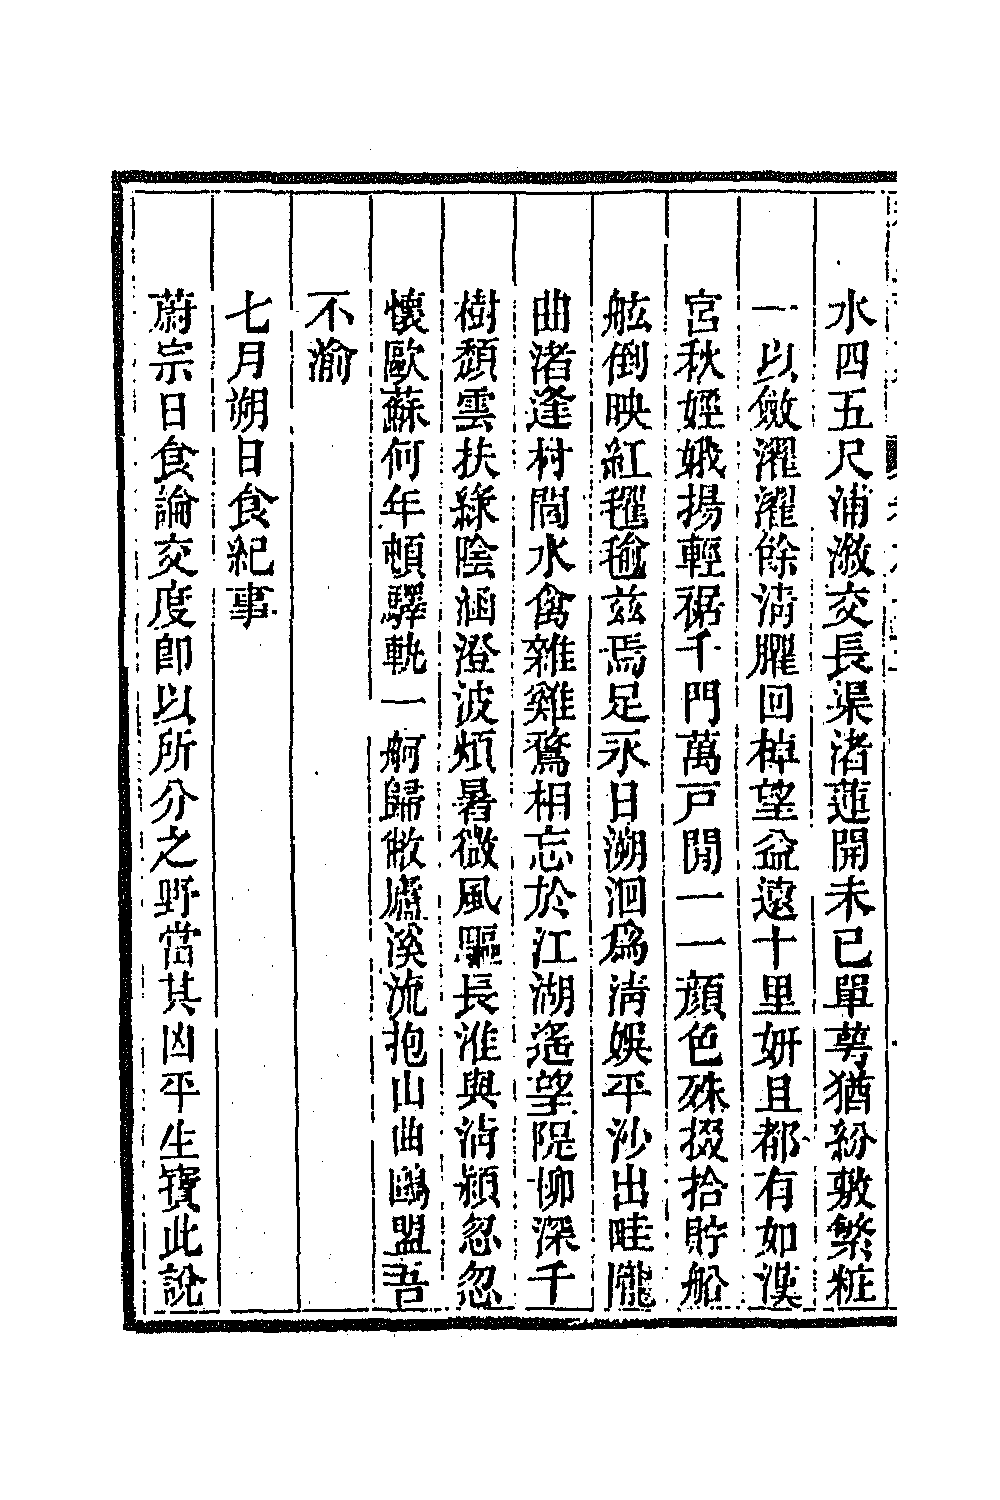 水四五尺浦漵交長渠渚蓮開未已單萼猶紛敷繁粧
一以斂濯濯餘淸臞回棹望益遠十里妍且都有如漢
宮秋娙娥揚輕裾千門萬戸閒一一顔色殊掇拾貯船
舷倒映紅氍毹兹焉足永日溯洄爲淸娛平沙出畦隴
曲渚逢村閭水禽雜雞鶩相忘於江湖遙望隄柳深千
樹頽雲扶綠陰涵澄波煩暑微風驅長淮與淸潁忽忽
懷歐蘇何年頓驛軌一舸歸敝廬溪流抱山曲鷗盟吾
不渝
七月朔日食紀事
蔚宗日食論交度卽以所分之野當其凶平生寶此説